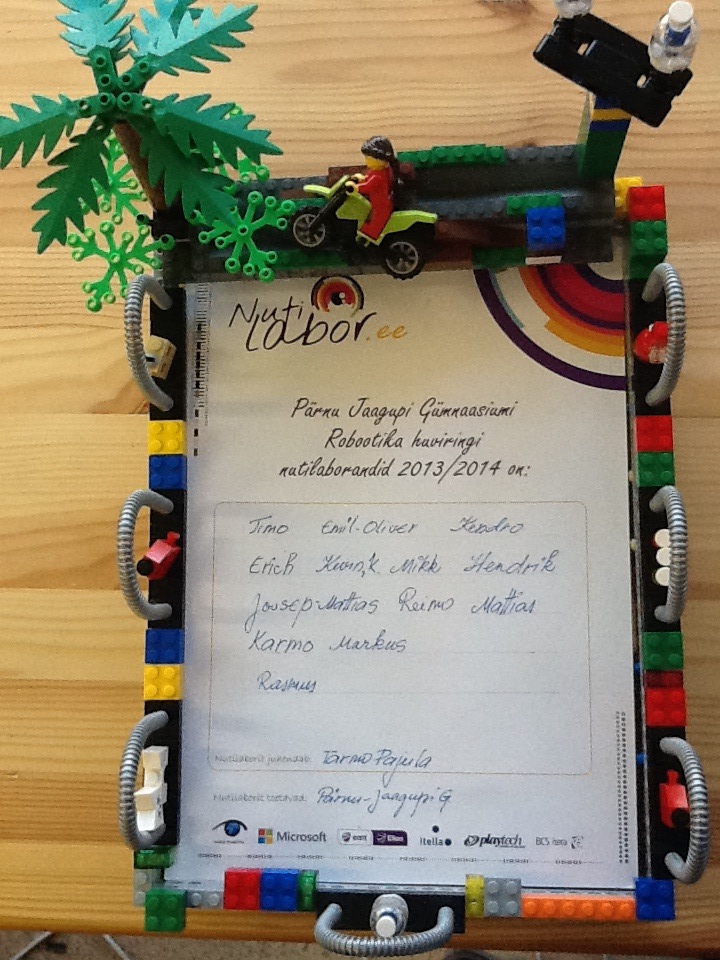 Nuti
Labor.ee
Pärnu Jaagupi Gümnaasiumi
Robootika huviringi
nutilaborandid 2013/2014 on:
Timo Emil-Oliver Kendro
Erich Mikk Hendrik
Joosep-Mattias Reimo Mattias
Karmo Markus
Rasmus
Nutilaborit juhendab: Tarmo Pajula
Nutilaborit toetavad: Pärnu-Jaagupi G
Microsoft
eesti
Elion
itella
playtech
BCS itera